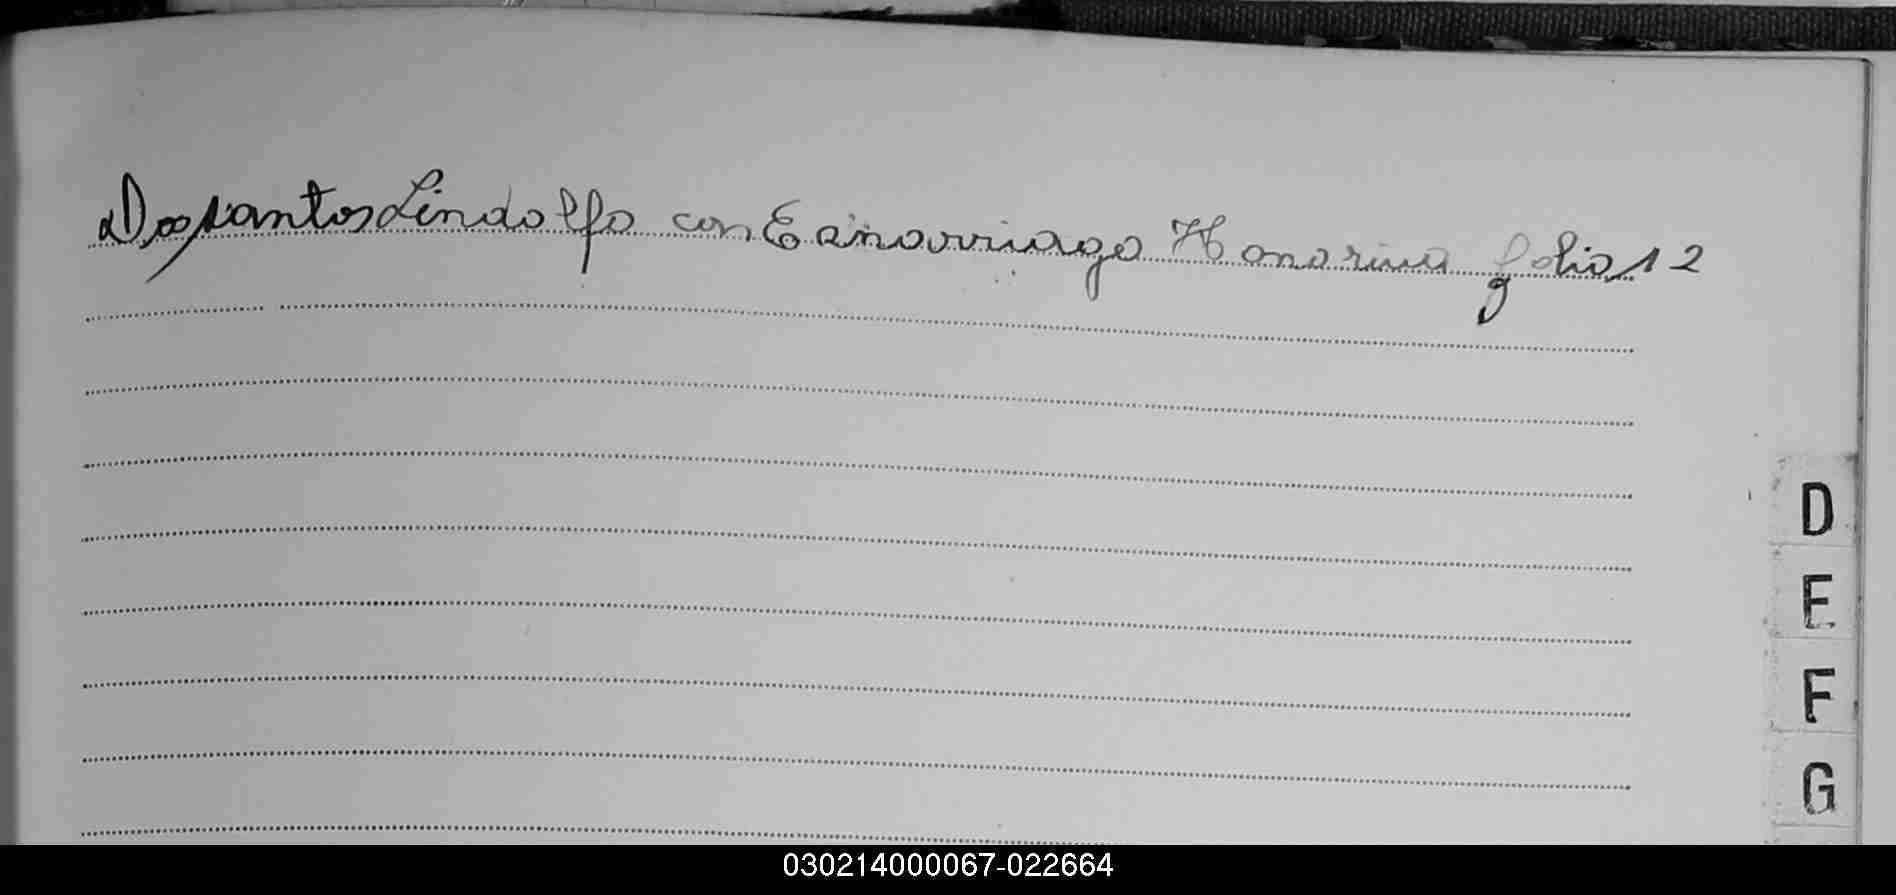 Dossantos Lindolfo con Echovrriaga Honorina folio 12
D
E
F
G
030214000067-022664